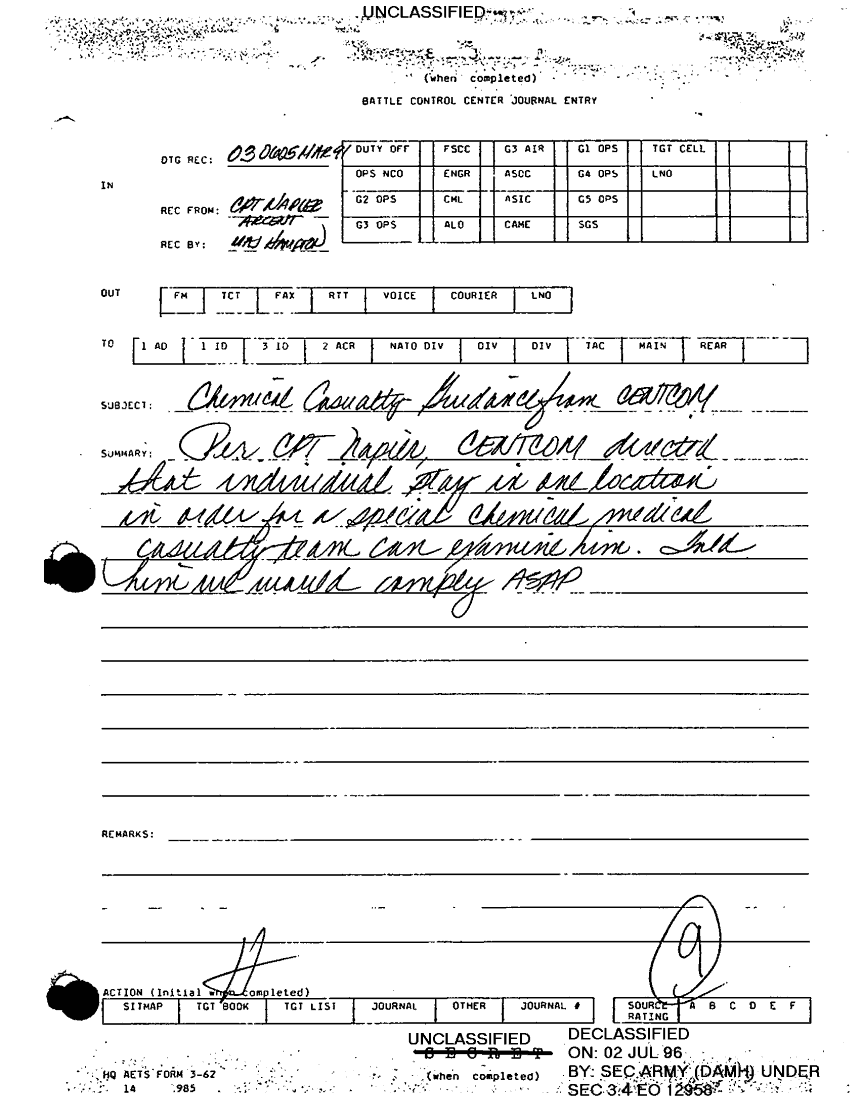 UNCLASSIFIED
(when completed)
BATTLE CONTROL CENTER JOURNAL ENTRY
IN
DTG REC: 030605MAR91
REC FROM: CPT NAPIER
ARCENT
REC BY: MAJ
DUTY OFF FSCC G3 AIR G1 OPS TGT CELL
OPS NCO ENGR ASCC G4 OPS LNO
G2 OPS CML ASIC G5 OPS
G3 OPS ALO CAME SGS
OUT FM TCT FAX RTT VOICE COURIER LNO
TO 1 AD 1 ID 3 ID 2 ACR NATO DIV DIV DIV TAC MAIN REAR
SUBJECT: Chemical Casualty Guidance from CENTCOM
SUMMARY: Per CPT Napier, CENTCOM directed
that individual stay in one location
in order for a special chemical medical
casualty team can examine him. Told
him we would comply ASAP
REMARKS:
9
ACTION (Initial when completed)
SITMAP TGT BOOK TGT LIST JOURNAL OTHER JOURNAL # SOURCE RATING A B C D E F
UNCLASSIFIED
SECRET
(when completed)
DECLASSIFIED
ON: 02 JUL 96
BY: SEC ARMY (DAMH) UNDER
SEC 3.4 EO 12958
HQ AETS FORM 3-62
14 985